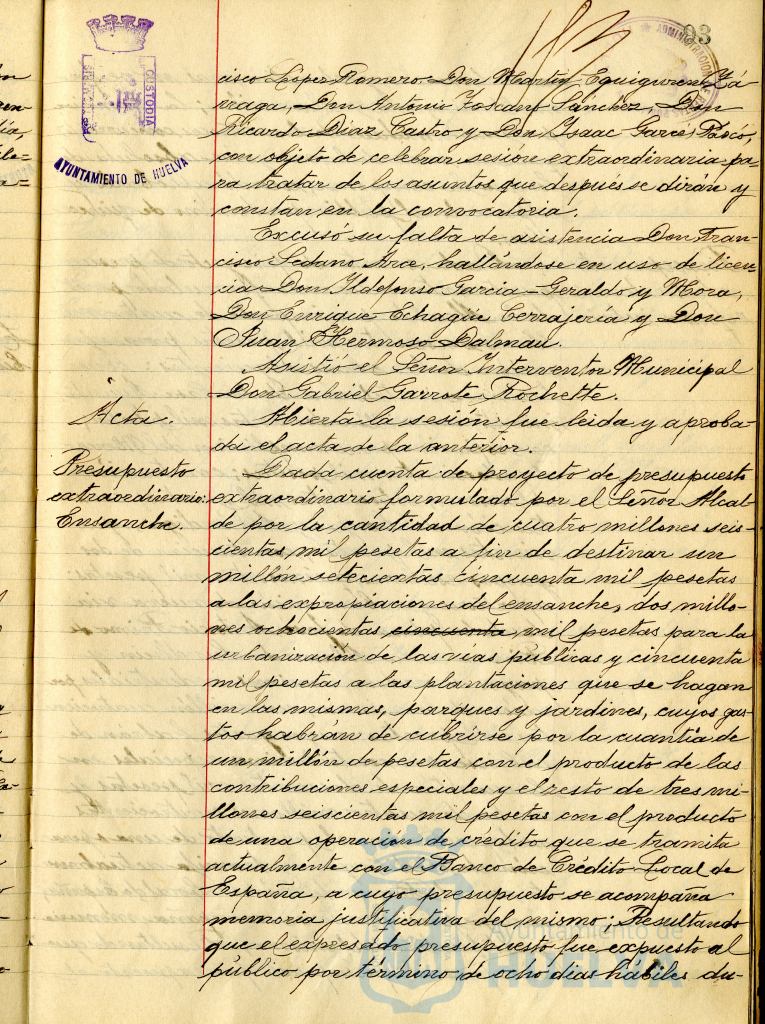 93
CUSTODIA
AYUNTAMIENTO DE HUELVA
cisco López Romero, Don Martín Equiguren Yá-
rraga, Don Antonio Toscano Sánchez, Don
Ricardo Díaz Castro y Don Isaac Garcés Pascó,
con objeto de celebrar sesión extraordinaria pa-
ra tratar de los asuntos que después se dirán y
constan en la convocatoria.
Excusó su falta de asistencia Don Fran-
cisco Sedano Arce, hallándose en uso de licen-
cia Don Ildefonso García-Geraldo y Mora,
Don Enrique Echagüe Cerrajería y Don
Juan Hermoso Dalmau.
Asistió el Señor Interventor Municipal
Don Gabriel Garrote Rochette.
Acta.
Abierta la sesión fue leida y aproba-
da el acta de la anterior.
Presupuesto
extraordinario:
Ensanche.
Dada cuenta de proyecto de presupuesto
extraordinario formulado por el Señor Alcal-
de por la cantidad de cuatro millones seis-
cientas mil pesetas a fin de destinar un
millón setecientas cincuenta mil pesetas
a las expropiaciones del ensanche, dos millo-
nes ochocientas cincuenta mil pesetas para la
urbanización de las vías públicas y cincuenta
mil pesetas a las plantaciones que se hagan
en las mismas, parques y jardines, cuyos gas-
tos habrán de cubrirse por la cuantía de
un millón de pesetas con el producto de las
contribuciones especiales y el resto de tres mi-
llones seiscientas mil pesetas con el producto
de una operación de crédito que se tramita
actualmente con el Banco de Crédito Local de
España, a cuyo presupuesto se acompaña
memoria justificativa del mismo; Resultando
que el expresado presupuesto fue expuesto al
público por término de ocho dias hábiles du-
Ayuntamiento de
HUELVA